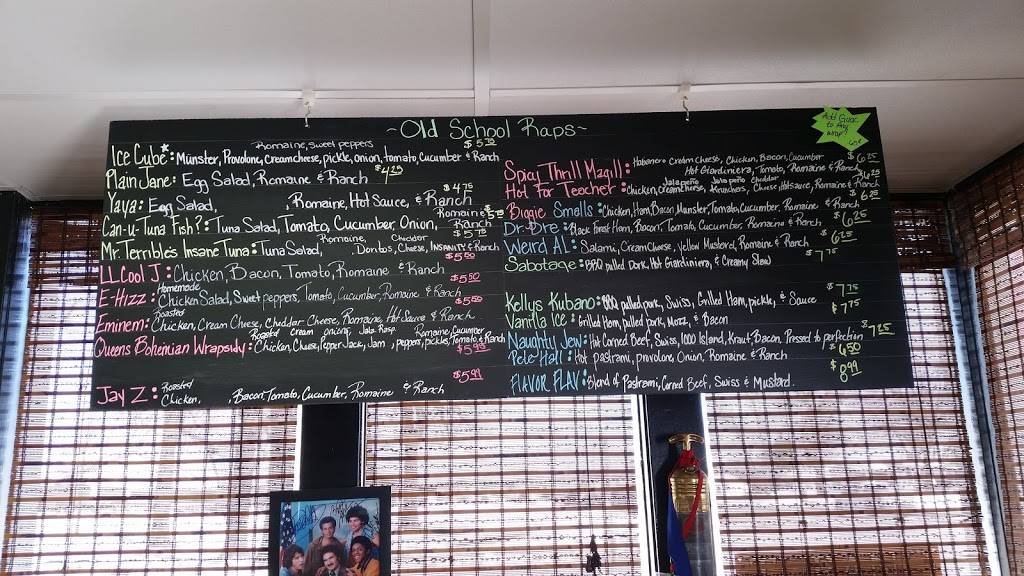 ~Old School Raps~
Add Guac to Any wrap!
Romaine, sweet peppers
Ice Cube*: Munster, Provolone, Creamcheese, pickle, onion, tomato, Cucumber & Ranch
Plain Jane: Egg Salad, Romaine & Ranch $4.25
$4.75
Yaya: Egg Salad, Romaine, Hot Sauce, & Ranch
Can-u-Tuna Fish?: Tuna Salad, Tomato, Cucumber, Onion, Romaine & Ranch
$5.75
Mr. Terribles Insane Tuna: Tuna Salad, Romaine, Doritos, Cheddar Cheese, INSANITY & Ranch
$5.50
LL Cool J: Chicken, Bacon, Tomato, Romaine & Ranch
$5.50
E-Hizz: Homemade Chicken Salad, Sweet peppers, Tomato, Cucumber, Romaine & Ranch
$5.50
Eminem: Roasted Chicken, Cream Cheese, Cheddar Cheese, Romaine, Hot Sauce & Ranch
Queens Bohemian Wrapsidy: Roasted Chicken, Cream Cheese, Pepper Jack, Jala Rasp. Jam, peppers, pickles, Romaine, Cucumber, Tomato & Ranch
$5.99
$5.99
Jay Z: Roasted Chicken, Bacon, Tomato, Cucumber, Romaine & Ranch
$6.25
Spicy Thrill Mzgill: Habanero Cream Cheese, Chicken, Bacon, Cucumber
Hot Giardiniera, Tomato, Romaine & Ranch
$6.25
Hot For Teacher: Chicken, Jalapeño Creamcheese, Jalapeño Krunchers, Cheddar Cheese, Hot Sauce, Romaine & Ranch
6.25
Biggie Smalls: Chicken, Ham, Bacon, Munster, Tomato, Cucumber, Romaine & Ranch
$6.25
Dr. Dre: Black Forest Ham, Bacon, Tomato, Cucumber, Romaine & Ranch
$6.25
Weird Al: Salami, Cream Cheese, Yellow Mustard, Romaine & Ranch
$7.75
Sabotage: BBQ pulled Pork, Hot Giardiniera, & Creamy Slaw
$7.75
Kellys Kubano: BBQ pulled pork, Swiss, Grilled Ham, pickle, & Sauce
$7.75
Vanilla Ice: Grilled Ham, pulled pork, Mozz, & Bacon
$7.25
Naughty Jew: Hot Corned Beef, Swiss, 1000 Island, Kraut, Bacon Pressed to perfection
$6.50
Pete Hall: Hot pastrami, provolone, Onion, Romaine & Ranch
$8.99
FLAVOR FLAV: Blend of Pastrami, Corned Beef, Swiss & Mustard.